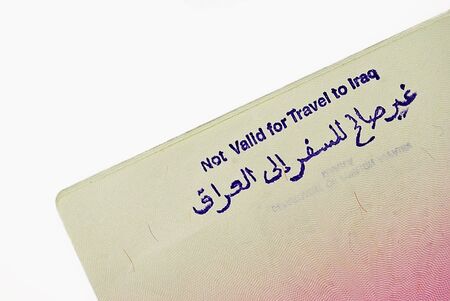 Not Valid for Travel to Iraq
غير صالح للسفر إلى العراق